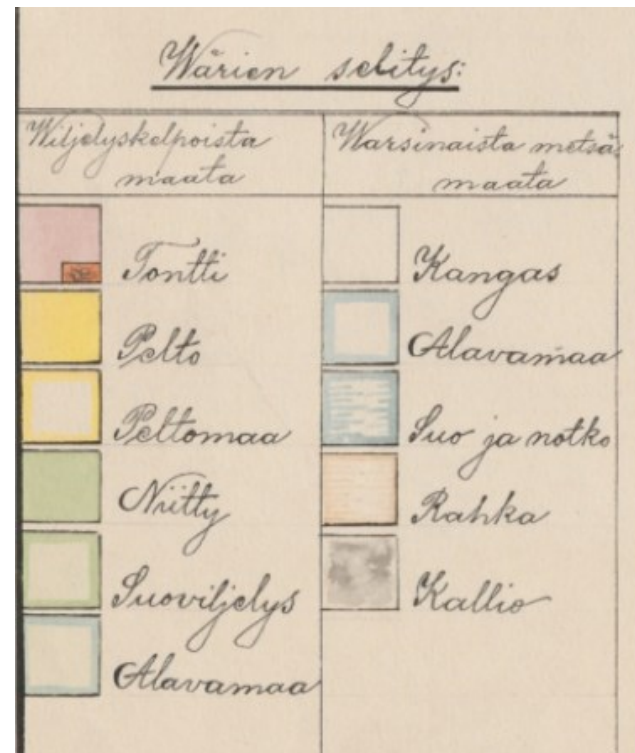 Wärien selitys:
Wiljelyskelpoista
maata
Tontti
Pelto
Peltomaa
Niitty
Suoviljelys
Alavamaa
Warsinaista metsä
maata
Kangas
Alavamaa
Suo ja notko
Rahka
Kallio